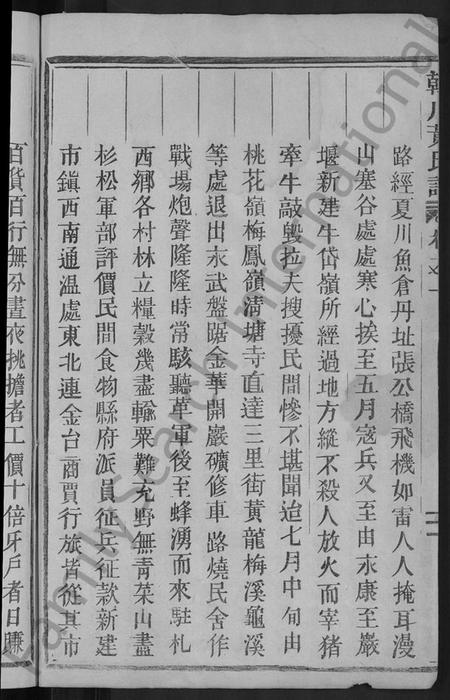 路經夏川魚倉丹址張公橋飛機如雷人人掩耳漫
山塞谷處處寒心挨至五月寇兵又至由永康至巖
堰新建牛岱嶺所經過地方縱不殺人放火而宰猪
牽牛敲毀拉夫搜擾民間慘不堪聞迨七月中旬由
桃花嶺梅鳳嶺清塘寺直達三里街黃龍梅溪龜溪
等處退出永武盤踞金華開巖礦修車路燒民舍作
戰場炮聲隆隆時常駭聽革軍後至蜂湧而來駐札
西鄉各村林立糧穀幾盡輸粟難充野無青菜山盡
杉松軍部評價民間食物縣府派員征兵征款新建
市鎮西南通温處東北連金台商賈行旅皆從其市
百貨百行無分晝夜挑擔者工價十倍牙戶者日賺
Family Search International